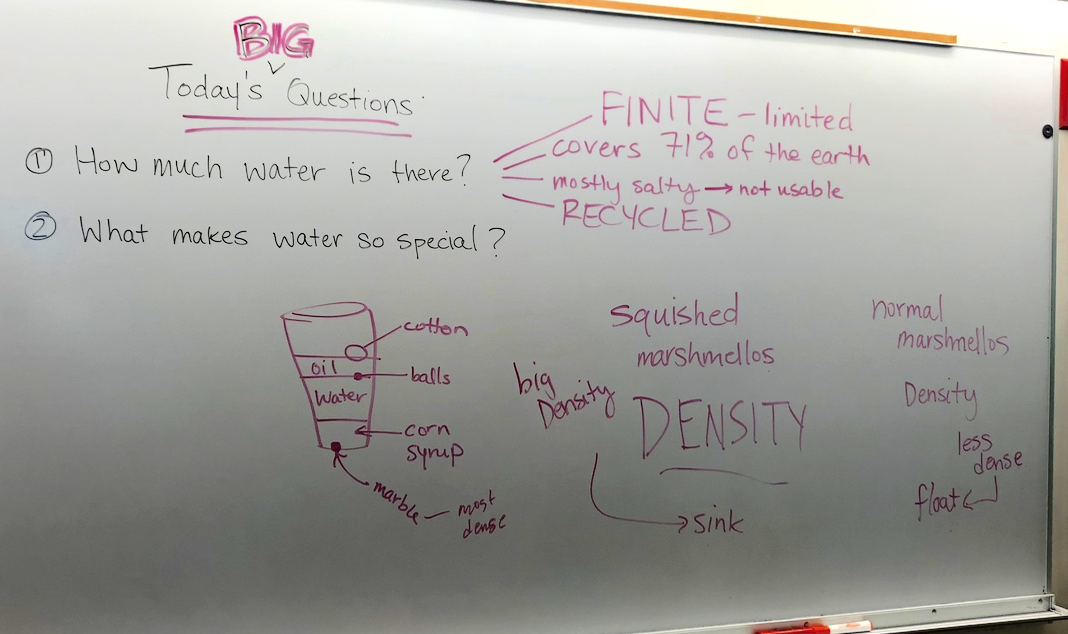 Today's BIG Questions
① How much water is there?
FINITE - limited
covers 71% of the earth
mostly salty → not usable
RECYCLED
② What makes water so special?
cotton
oil
balls
Water
corn
syrup
marble - most
dense
big
Density
squished
marshmellos
DENSITY
→ sink
normal
marshmellos
Density
less
dense
float